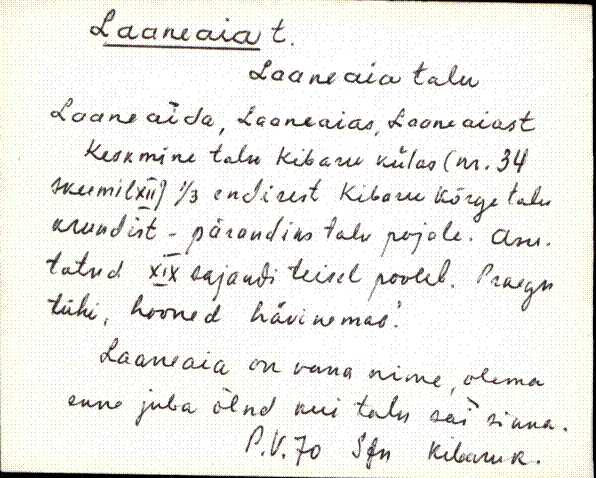 Laaneaia t.
Laaneaia talu
Laaneaida, Laaneaias, Laaneaiast
Keskmine talu Kibaru külas (nr. 34
skeemil XII) 1/3 endisest Kibaru Kõrge talu
krundist - päranduis talu pojale. Asu-
tatud XIX sajandi teisel poolel. Praegu
tühi, hooned hävinemas.
Laaneaia on vana nime, olema
enne juba õlnd kui talu sai sinna.
P.V. 70 Kibaru k.